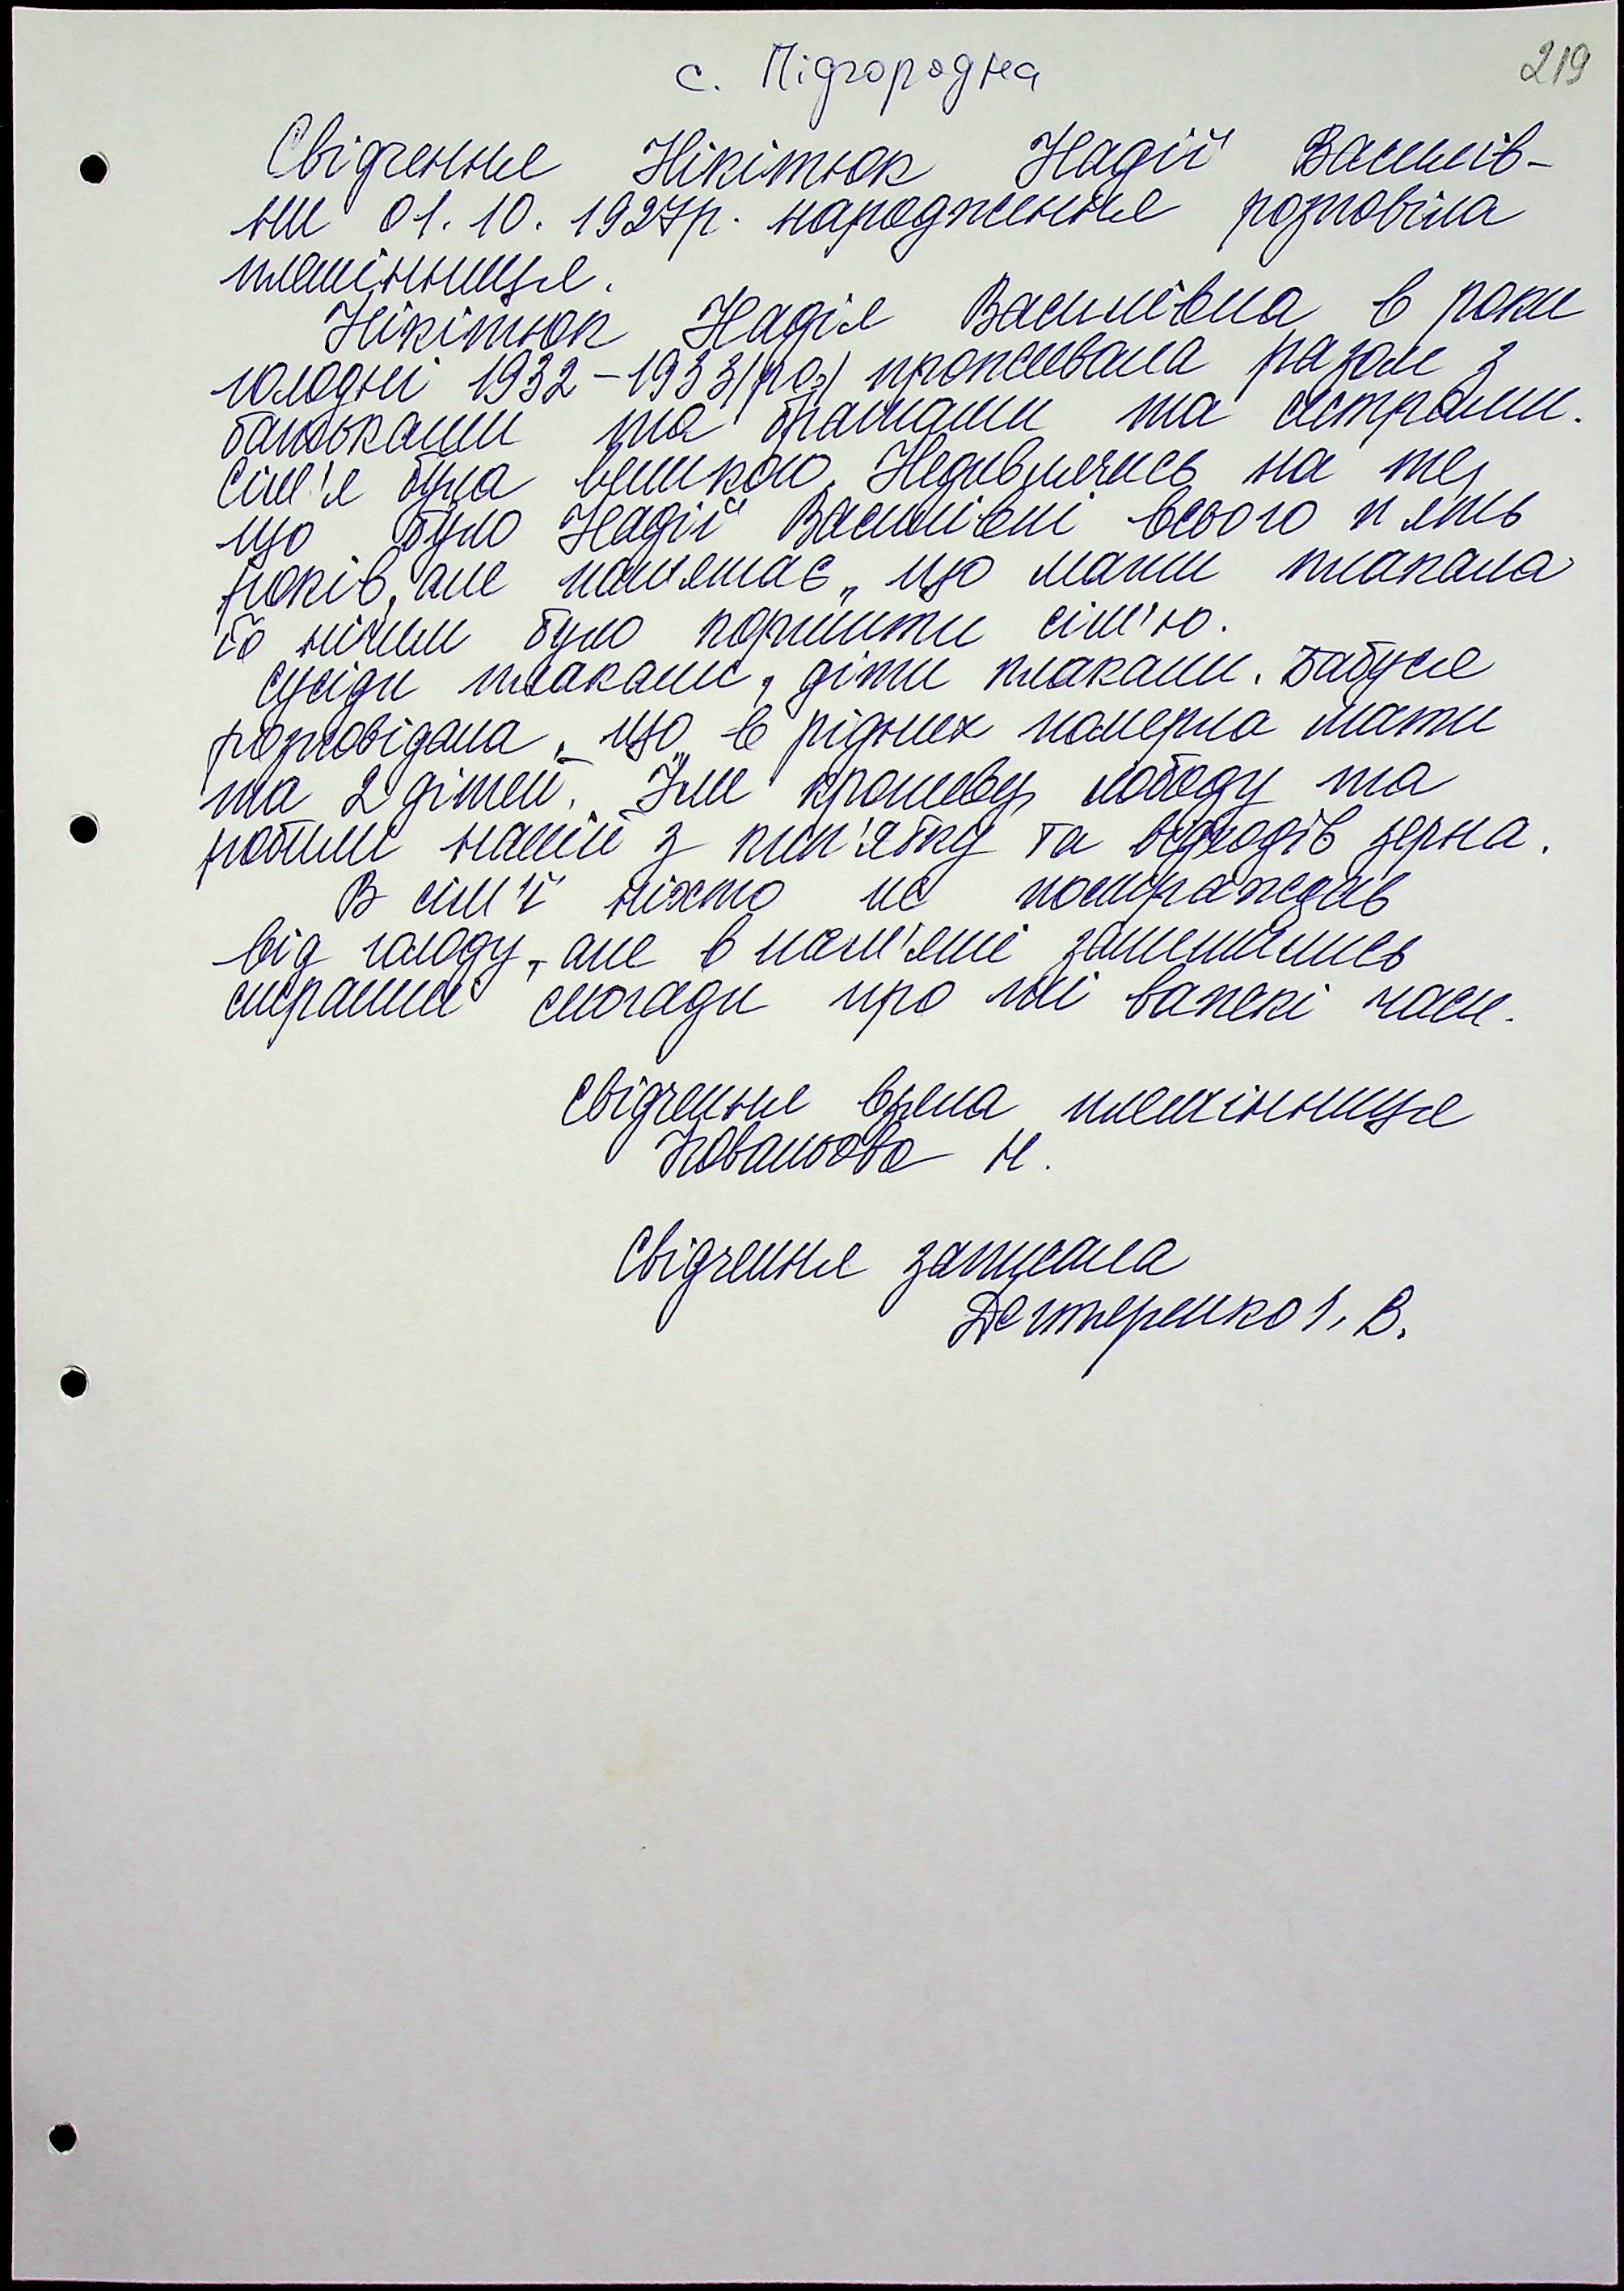 с. Підгородна
219
Свідчення Нікітюк Надії Василів-
ни 01.10.1927р. народження розповіла
племінниця.
Нікітюк Надія Василівна в роки
голодні 1932-1933 проживала разом з
батьками та братами та сестрами.
Сім'я була великою. Недивлячись на те,
що було Надії Василівні всього п'ять
років, але пам'ятає, що мати плакала
бо нічим було кормити сім'ю.
Сусіди плакали, діти плакали. Бабуся
розповідала, що в рідних померла мати
та 2 дітей. Їли кропиву, лободу та
робили напій з кип'ятку та відходів зерна.
В сім'ї ніхто не постраждав
від голоду, але в пам'яті залишились
страшні спогади про ті важкі часи.
Свідчення взяла племінниця
Ковальова Н.
Свідчення записала
Дегтеренко І. В.